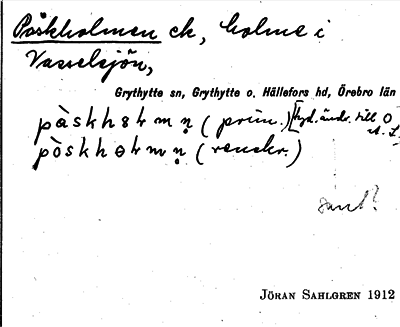 Påskholmen ck, holme i
Vasselsjön,
Grythytte sn, Grythytte o. Hällefors hd, Örebro län
påskhɵɫmn̥ (prim.) [tyd. ändr. till o
pòskhɵɫmn̥ (renskr.)
JÖRAN SAHLGREN 1912